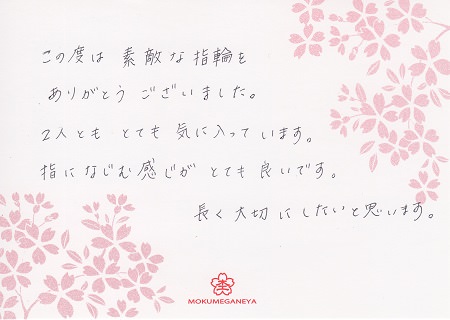 この度は 素敵な指輪を
ありがとう ございました。
2人とも とても 気に入って います。
指に なじむ 感じが とても 良いです。
長く 大切 に したいと 思います。
MOKUMEGANEYA